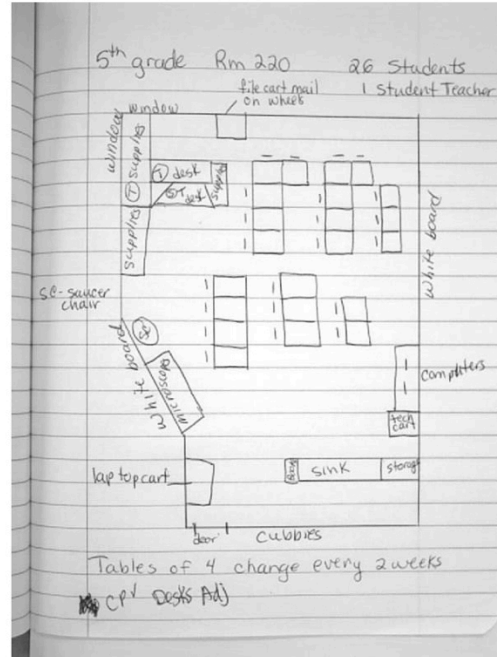 5th grade Rm 220 26 Students
1 Student Teacher
window
file cart mail
on wheels
window
T supplies
T desk
ST desk
supplies
supplies
White board
SC-saucer
chair
SC
White board
microscope
computers
tech
cart
laptopcart
sink
storage
door
cubbies
Tables of 4 change every 2 weeks
Desks Adj